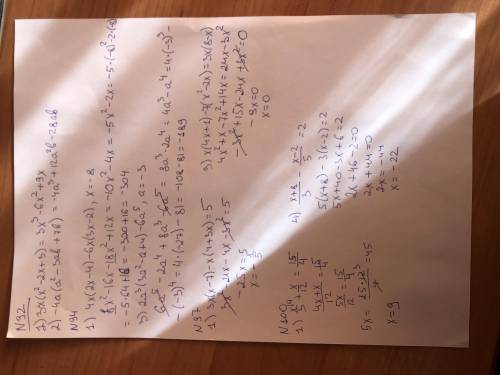 N92
2) 3x(x²-2x+3)=3x³-6x²+9x
2) -4a(a²-3ab+7b)=-4a³+12a²b-28ab
N94
1) 4x(2x-4)-6x(3x-2), x=-8
8x²-16x-18x²+12x=-10x²-4x=-5x²-2x=-5·(-8)²-2·(-8)
=-5·64+16=-320+16=-304
3) 2a³(3a²-a+4)-6a⁵, a=-3
6a⁵-2a⁴+8a³-6a⁵=8a³-2a⁴=4a³-a⁴=4·(-3)³-
-(-3)⁴=4·(-27)-81=-108-81=-189
N97
1) 3x(x-7)-x(4+3x)=5
3x²-21x-4x-3x²=5
-25x=5
3) x(4x+1)-7(x²-2x)=3x(8-x)
4x²+x-7x²+14x=24x-3x²
-3x²+15x-24x+3x²=0
-9x=0
x=0
N100
4x+x/12=15/4
5x/12=15/4
5x=15·12/4=45
x=9
4) x+8/3-x-2/5=2
5(x+8)-3(x-2)=2
5x+40-3x+6=2
2x+46-2=0
2x+44=0
2x=-44
x=-22